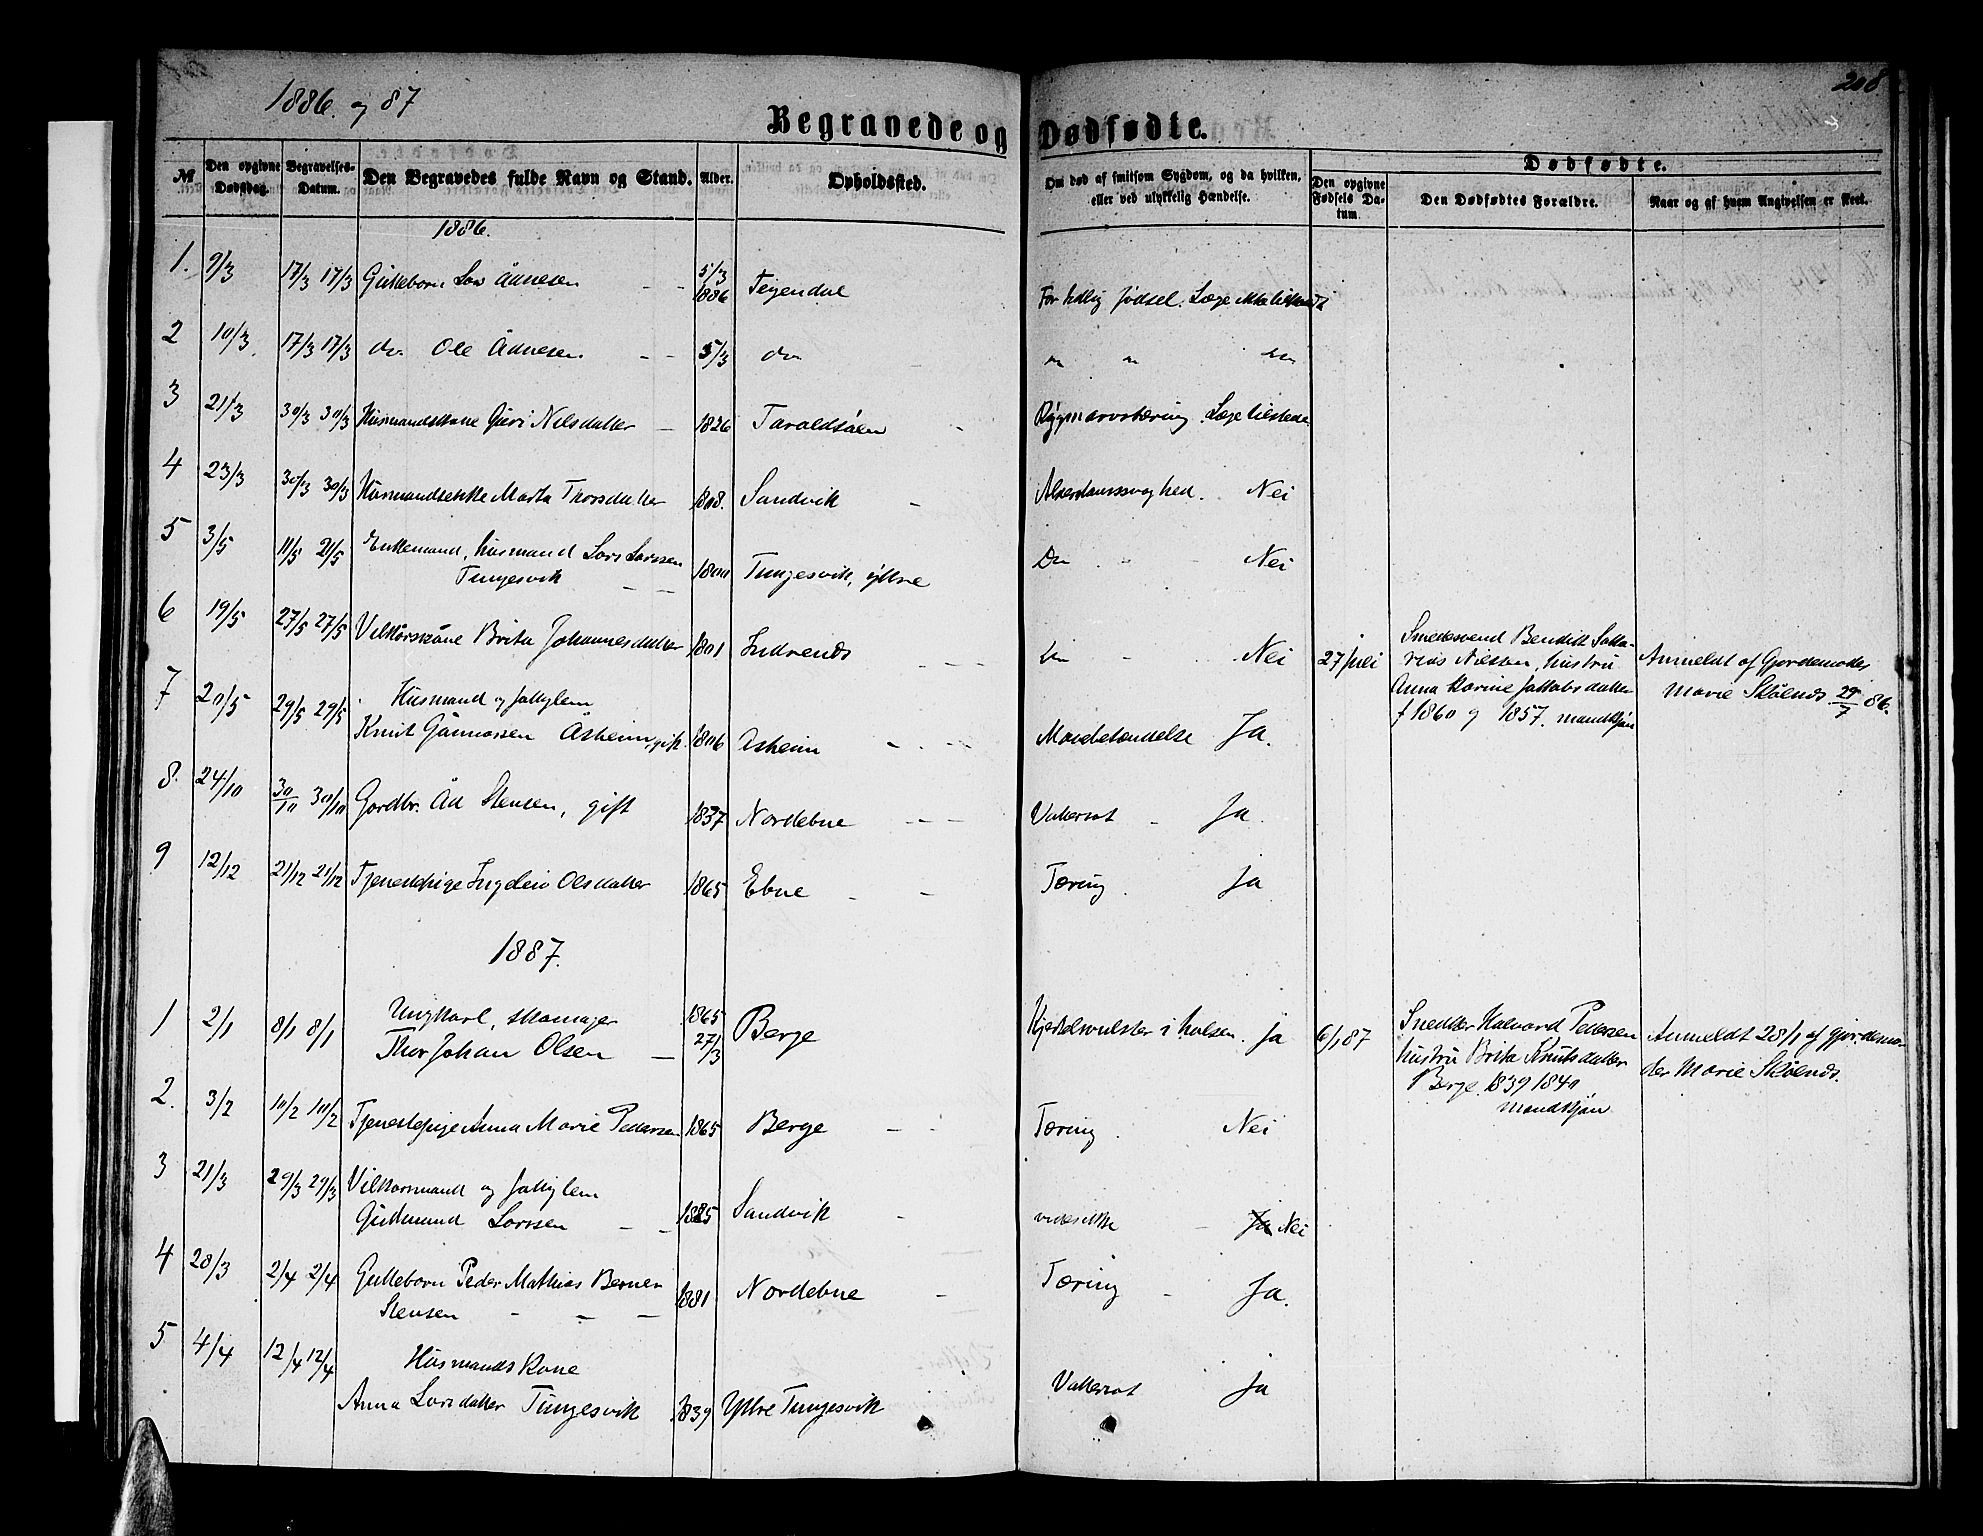 1886. og 87
208
Begravede og Dødfødte.
No
Den opgivne Dødsdag.
Begravelses-Datum.
Den Begravedes fulde Navn og Stand.
Alder.
Opholdssted.
Om død af smitsom Sygdom, og da hvilken, eller ved ulykkelig Hændelse.
Dødfødte.
Den opgivne Fødsels Datum.
Den Dødfødtes Forældre.
Naar og af hvem Angivelsen er skeet.
1886.
1. 9/3 17/3 17/3 Gutteborn Lars Ådnesen 5/3 1886 Teigendal For tidlig fødsel. Læge
2 10/3 17/3 17/3 do Ole Ådnesen 5/3 do " " "
3 21/3 30/3 30/3 Husmandskone Guri Nilsdatter 1826 Taraldsøien Rygmarvstæring. Læge tilstede
4 23/3 30/3 30/3 Husmandsenke Marta Thorsdatter 1808. Sandvik Alderdomssvaghed. Nei
5 3/5 11/5 21/5 Enkemand, husmand Lars Larssen
Tungesvik 1800 Tungesvik, yttre Do Nei
6 19/5 27/5 27/5 Vilkårskone Brita Johannesdatter 1801 Indrenæs Do Nei
27 juli Smedesvend Bendikt Sakarias Nielsen, hustru
Anna Karine Jakkobsdatter
f 1860 og 1857. mandkjøn
Anmeldt af Gjordemoder
Marie Skålnæs 29/7 86.
7 20/5 29/5 29/5 Husmand og fattiglem
Knut Gunnarssen Åsheim, gift 1806 Åsheim Mavebetændelse Ja.
8. 24/10 30/10 30/10 Gardbr. Åd Stensen, gift 1837 Nordebne Vattersot Ja.
9 12/12 21/12 21/12 Tjenestepige Ingeleiv Olsdatter 1865 Ebne Tæring. Ja
1887.
1 2/1 8/1 8/1 Ungkarl, skomager
Thor Johan Olsen 1865 27/3 Berge Kjertelsvulster i halsen. Ja
6/1 87 Snedker Halvard Pedersen
hustru Brita Knutsdatter
Berge. 1839 1840
mandkjøn
Anmeldt 28/1 af gjordemoder Marie Skålnæs.
2. 3/2 10/2 10/2 Tjenestepige Anna Marie Pedersen 1865 Berge Tæring. Nei
3 21/3 29/3 29/3 Vilkårsmand og fattiglem
Gudmund Larssen Sandvik vides ikke Ja Nei
4 28/3 2/4 2/4 Gutteborn Peder Mathias Berner
Stensen 1881 Nordebne Tæring Ja.
5 4/4 12/4 12/4 Husmandskone
Anna Larsdatter Tungesvik 1839 Yttre Tungesvik Vattersot Ja